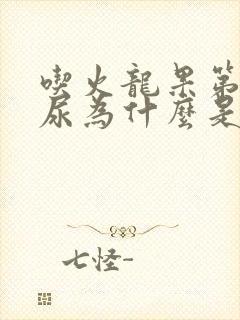 喫火龍果第
尿為什麼是
七怪-